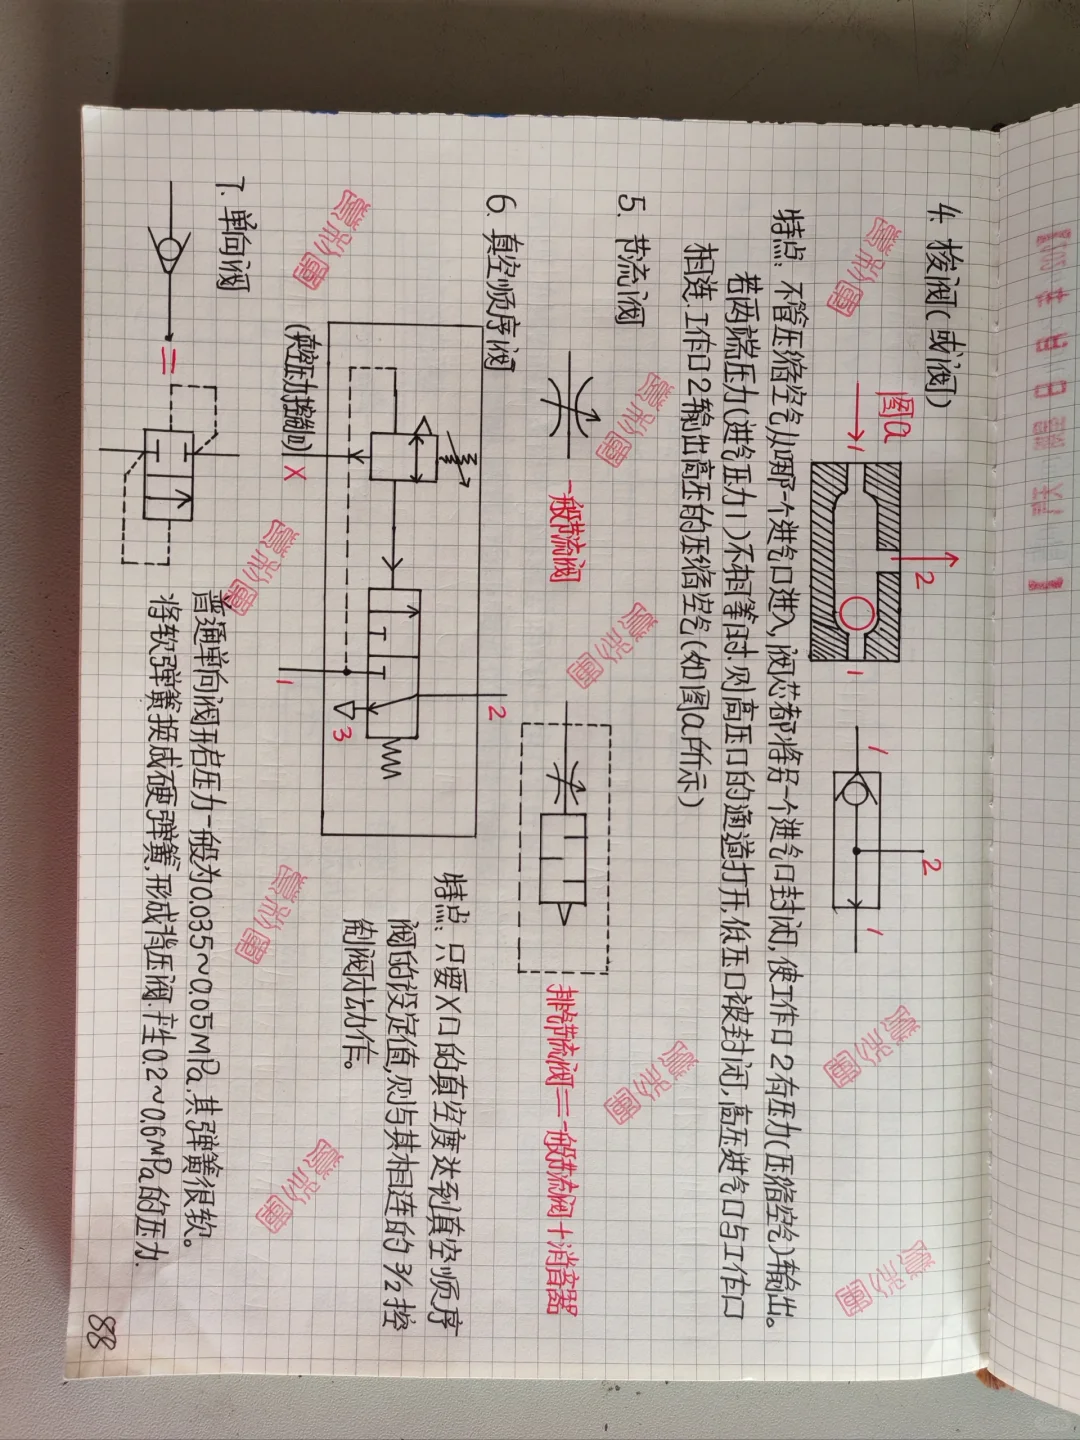 4. 梭阀(或阀)
图a
1
2
1
1
2
1
特点: 不管压缩空气从哪个进气口进入,阀芯都将另一个进气口封闭,使工作口2有压力(压缩空气)输出。
若两端压力(进气压力1)不相等时.则高压口的通道打开,低压口被封闭,高压进气口与工作口
相连.工作口2输出高压的压缩空气(如图a所示)
5. 节流阀
一般节流阀
排气节流阀=一般节流阀+消音器
6. 真空顺序阀
(真空压力控制口) X
1
2
3
特点: 只要X口的真空度达到真空顺序
阀的设定值,则与其相连的3/2控
制阀才动作。
7. 单向阀
=
普通单向阀开启压力一般为0.035~0.05MPa,其弹簧很软。
将软弹簧换成硬弹簧,形成背压阀.产生0.2~0.6MPa的压力.
88